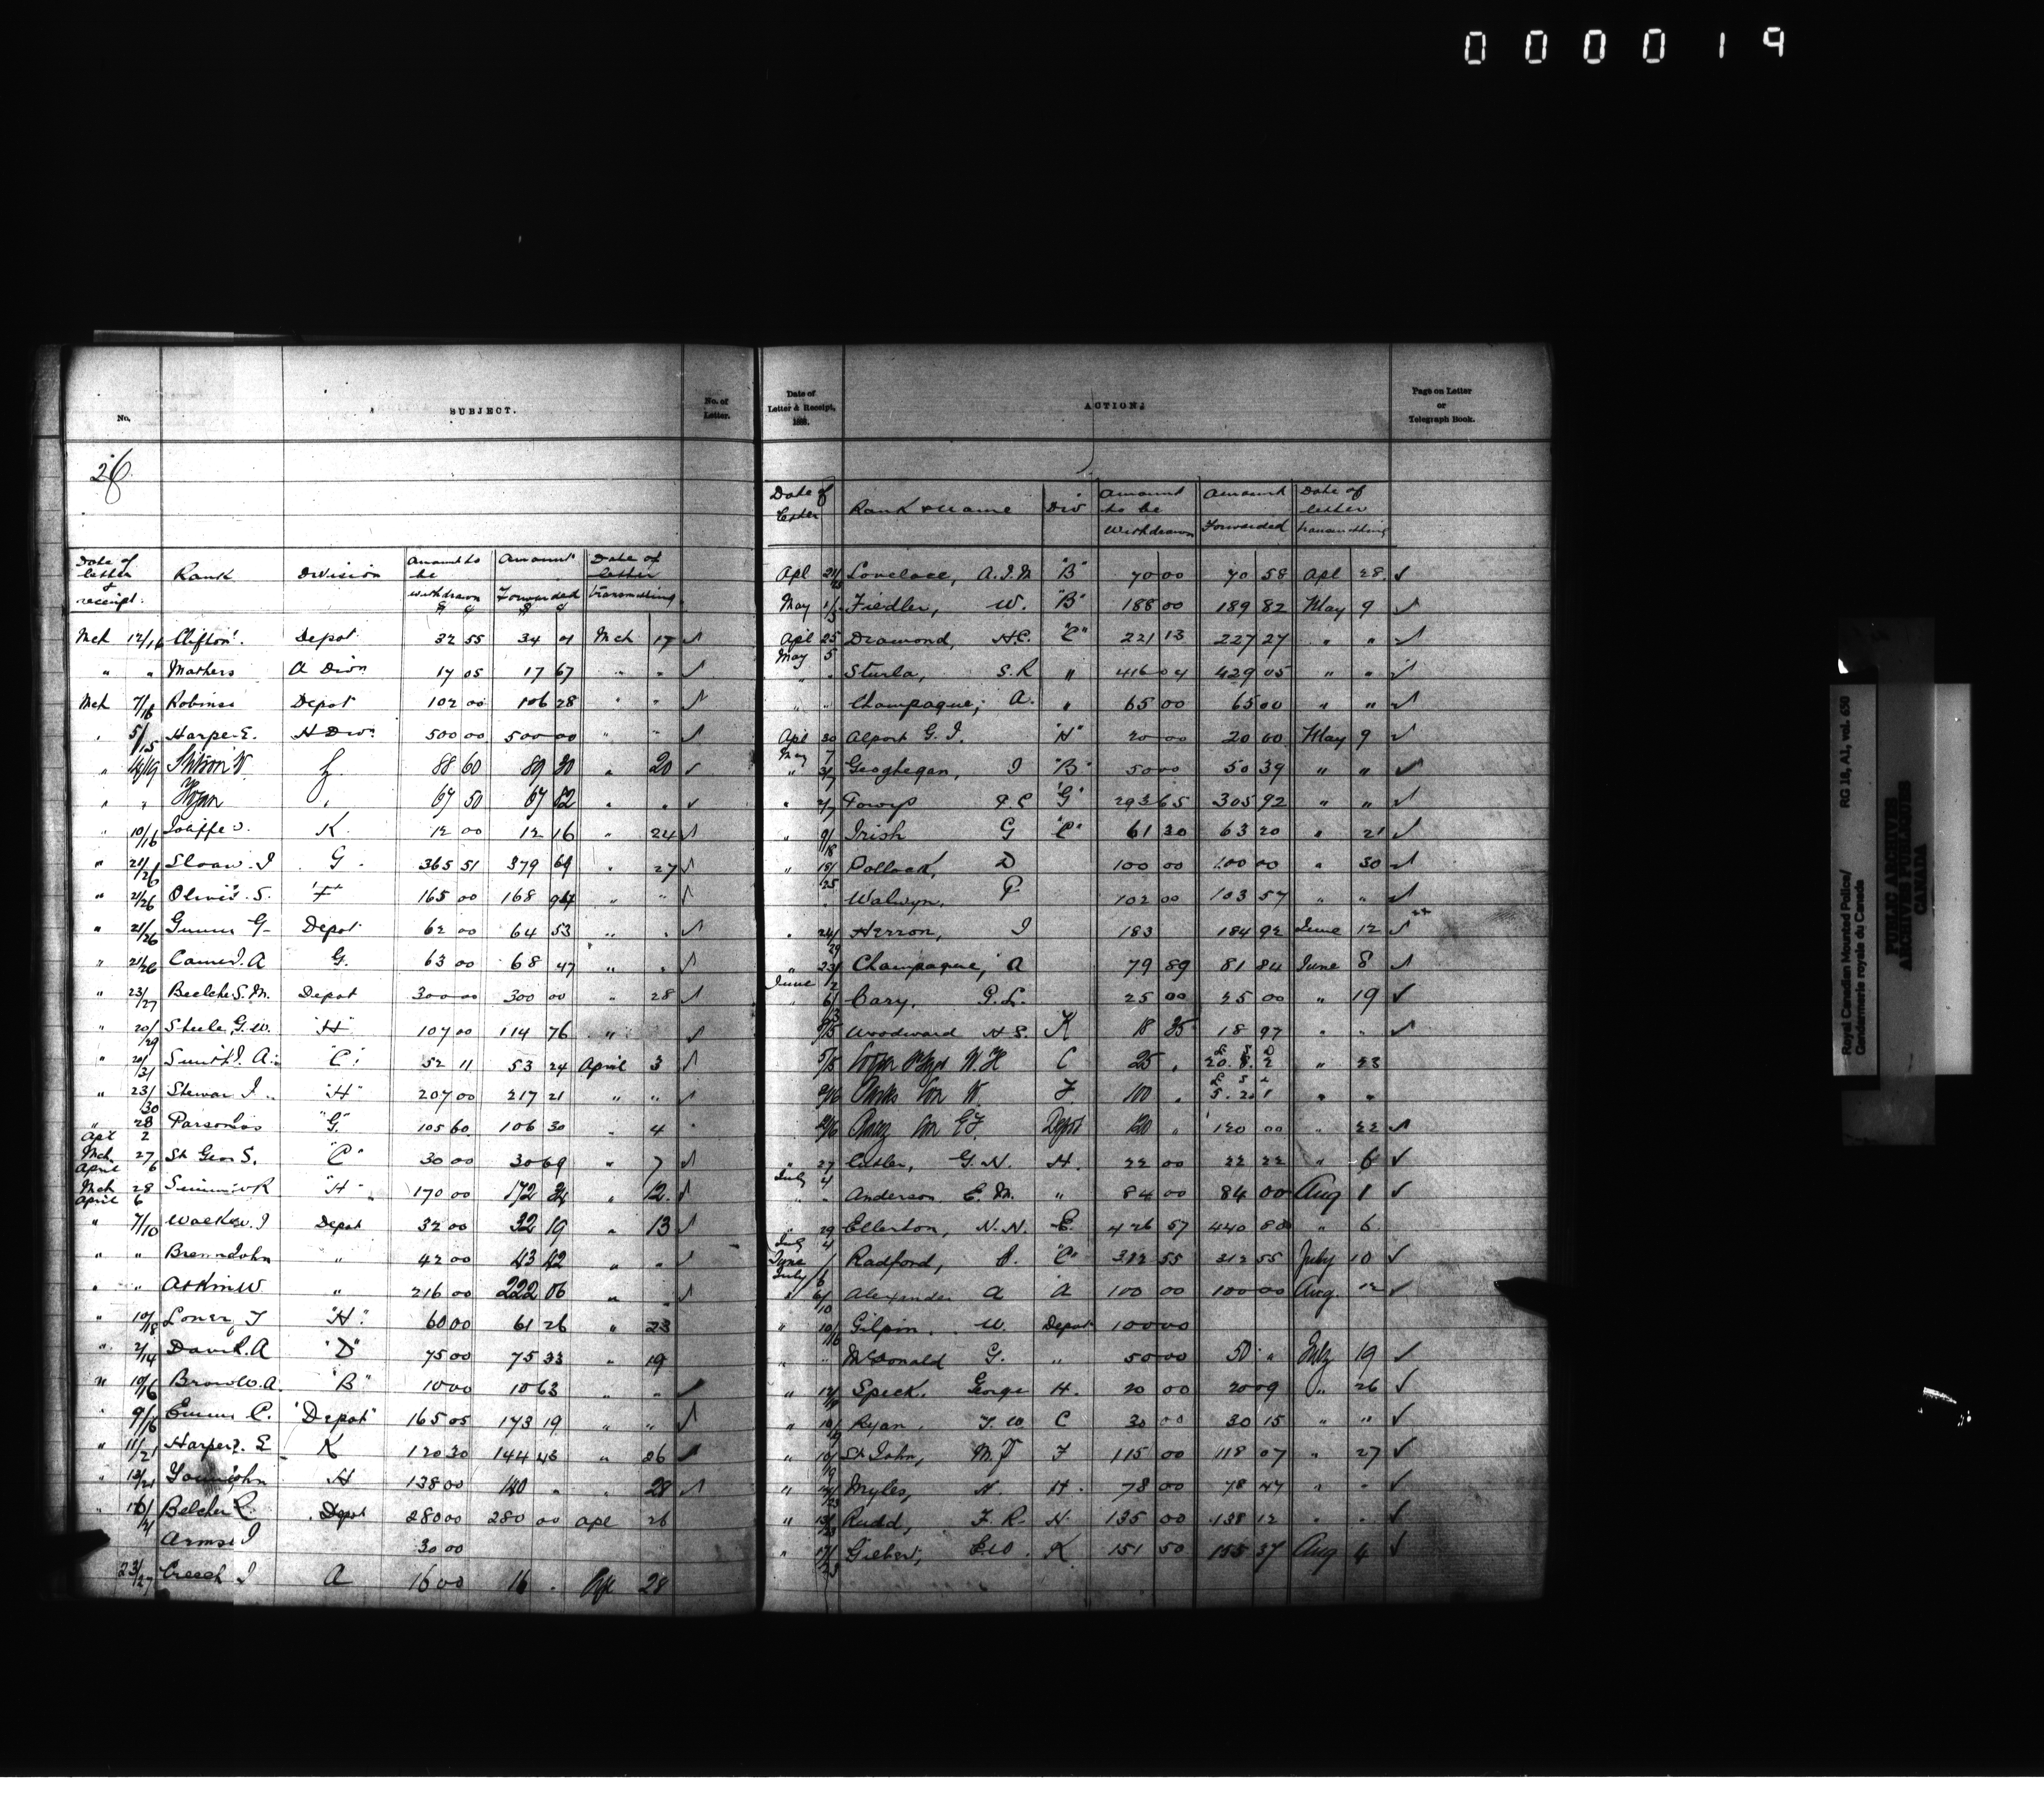 0 0 0 0 1 9
No.
SUBJECT.
No. of Letter.
26
Date of letter & receipt. Rank Division Amount to be withdrawn $ c Amount Forwarded $ c Date of letter transmitting
Mch 12/16 Clifton Depot 32 55 34 01 Mch 17 ✓
" " Mathers A Divn 17 05 17 67 " " ✓
Mch 7/16 Robinso Depot 102 00 106 28 " " ✓
" 5/15 Harper E. H Divn 500 00 500 00 " " ✓
" W 88 60 89 30 " 20 ✓
" " 67 50 67 82 " " ✓
" 10/16 Joliffe J. K. 12 00 12 16 " 24 ✓
" 21/26 Sloan J G. 365 51 379 69 " 27 ✓
" 21/26 Olivi S. "F" 165 00 168 94 " " ✓
" 21/26 G Depot 62 00 64 53 " " ✓
" 21/26 A G. 63 00 68 47 " " ✓
" 23/27 Belcher S.M. Depot 300 00 300 00 " 28 ✓
" 20/29 Steele, G.W. "H" 107 00 114 76 " ✓
" 20/31 Smith A. "C" 52 11 53 24 April 3 ✓
" 23/30 Stewar J. "H" 207 00 217 21 " " ✓
" 28 Apl 2 Parsons "G" 105 60 106 30 " 4
Mch 27 April 6 St Geo S. "C" 30 00 30 69 " 7 ✓
Mch 28 April 6 R "H" 170 00 172 " 12 ✓
" 7/10 Walker J Depot 32 00 32 19 " 13 ✓
" " John " 42 00 43 42 " " ✓
" " Atkin W " 216 00 222 06 " ✓
" 10/18 T "H" 60 00 61 26 " 23
" 2/14 A "D" 75 00 75 33 " 19
" 10/16 Brow W.A. "B" 10 00 10 63 " " ✓
" 9/16 C. "Depot" 165 05 173 19 " " ✓
" 11/21 Harper E K 120 30 144 43 " 26 ✓
" John H 138 00 140 " " 28 ✓
" Belcher R. Depot 280 00 280 00 Apl 26
J 30 00
23/27 Creech J A 16 00 16 - Apl 28
Date of Letter & Receipt, 188 .
ACTION.
Page on Letter or Telegraph Book.
Date of letter Rank & name Div Amount to be withdrawn Amount Forwarded Date of letter transmitting
Apl Lovelace, A.J.M "B" 70 00 70 58 Apl 28 ✓
May 1/5 Fiedler, W. "B" 188 00 189 82 May 9 ✓
Apl 25 May 5 Diamond, H.C. "C" 221 13 227 27 " " ✓
" " Sturla, S.R " 416 04 429 05 " " ✓
" " Champagne, A. " 65 00 65 00 " " ✓
Apl 30 May 7 Alport G.J. "H" 20 00 20 00 May 9 ✓
" 3/7 Geoghegan, J "B" 50 00 50 39 " " ✓
" 2/7 Powys P.C "G" 293 65 305 92 " " ✓
" 9/18 Irish G "C" 61 30 63 20 " 21 ✓
" 18/25 Pollock, D 100 00 100 00 " 30 ✓
" Walwyn, P 102 00 103 57 " " ✓
" 24/29 Herron, J 183 184 92 June 12 ✓
" 23/ June 2 Champagne, A 79 89 81 84 June 8 ✓
" 6/13 Cary, G.L. 25 00 25 00 " 19 ✓
Woodward H.S. K 18 85 18 97 " " ✓
W. H C 25 " £ S D 20. 8. 2 " 23
Parks W. F. 100 " £ S d " "
Depot 120 " 120 00 " 22 ✓
" 27 July 4 Cutler, G.N. H. 22 00 22 22 " 6 ✓
" Anderson, E.M. " 84 00 84 00 Aug 1 ✓
" 29 July 4 Ellerton, N.N. E. 426 57 440 80 " 6
June 1 July 6 Radford, "C" 312 55 312 55 July 10 ✓
" 6/10 Alexander A A 100 00 100 00 Aug. 12 ✓
" 10/16 Gilpin, W. Depot 100 00
" " McDonald G. " 50 00 50 " July 19 ✓
" Speck, George H. 20 00 20 09 " 26 ✓
" Ryan, T.W C 30 00 30 15 " " ✓
" 10/19 St John, M.F F 115 00 118 07 " 27 ✓
" Myles, H. H. 78 00 78 47 " " ✓
" 13/23 Rudd, F.R. H. 135 00 138 12 " " ✓
" 17/23 Gilbert, K 151 50 155 37 Aug 4 ✓
Royal Canadian Mounted Police/ RG 18, A1, vol. 650
Gendarmerie royale du Canada
PUBLIC ARCHIVES
ARCHIVES PUBLIQUES
CANADA